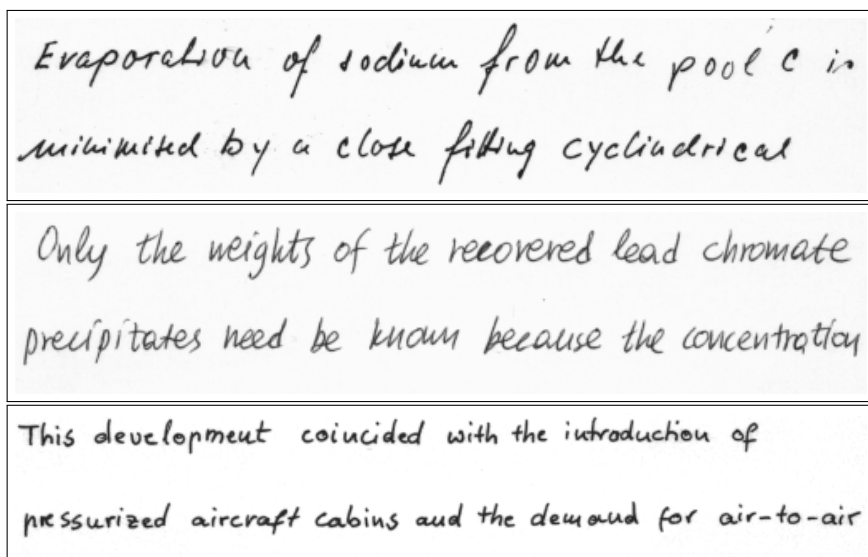 Evaporation of sodium from the pool C is
minimised by a close fitting cyclindrical
Only the weights of the recovered lead chromate
precipitates need be known because the concentration
This development coincided with the introduction of
pressurized aircraft cabins and the demand for air-to-air